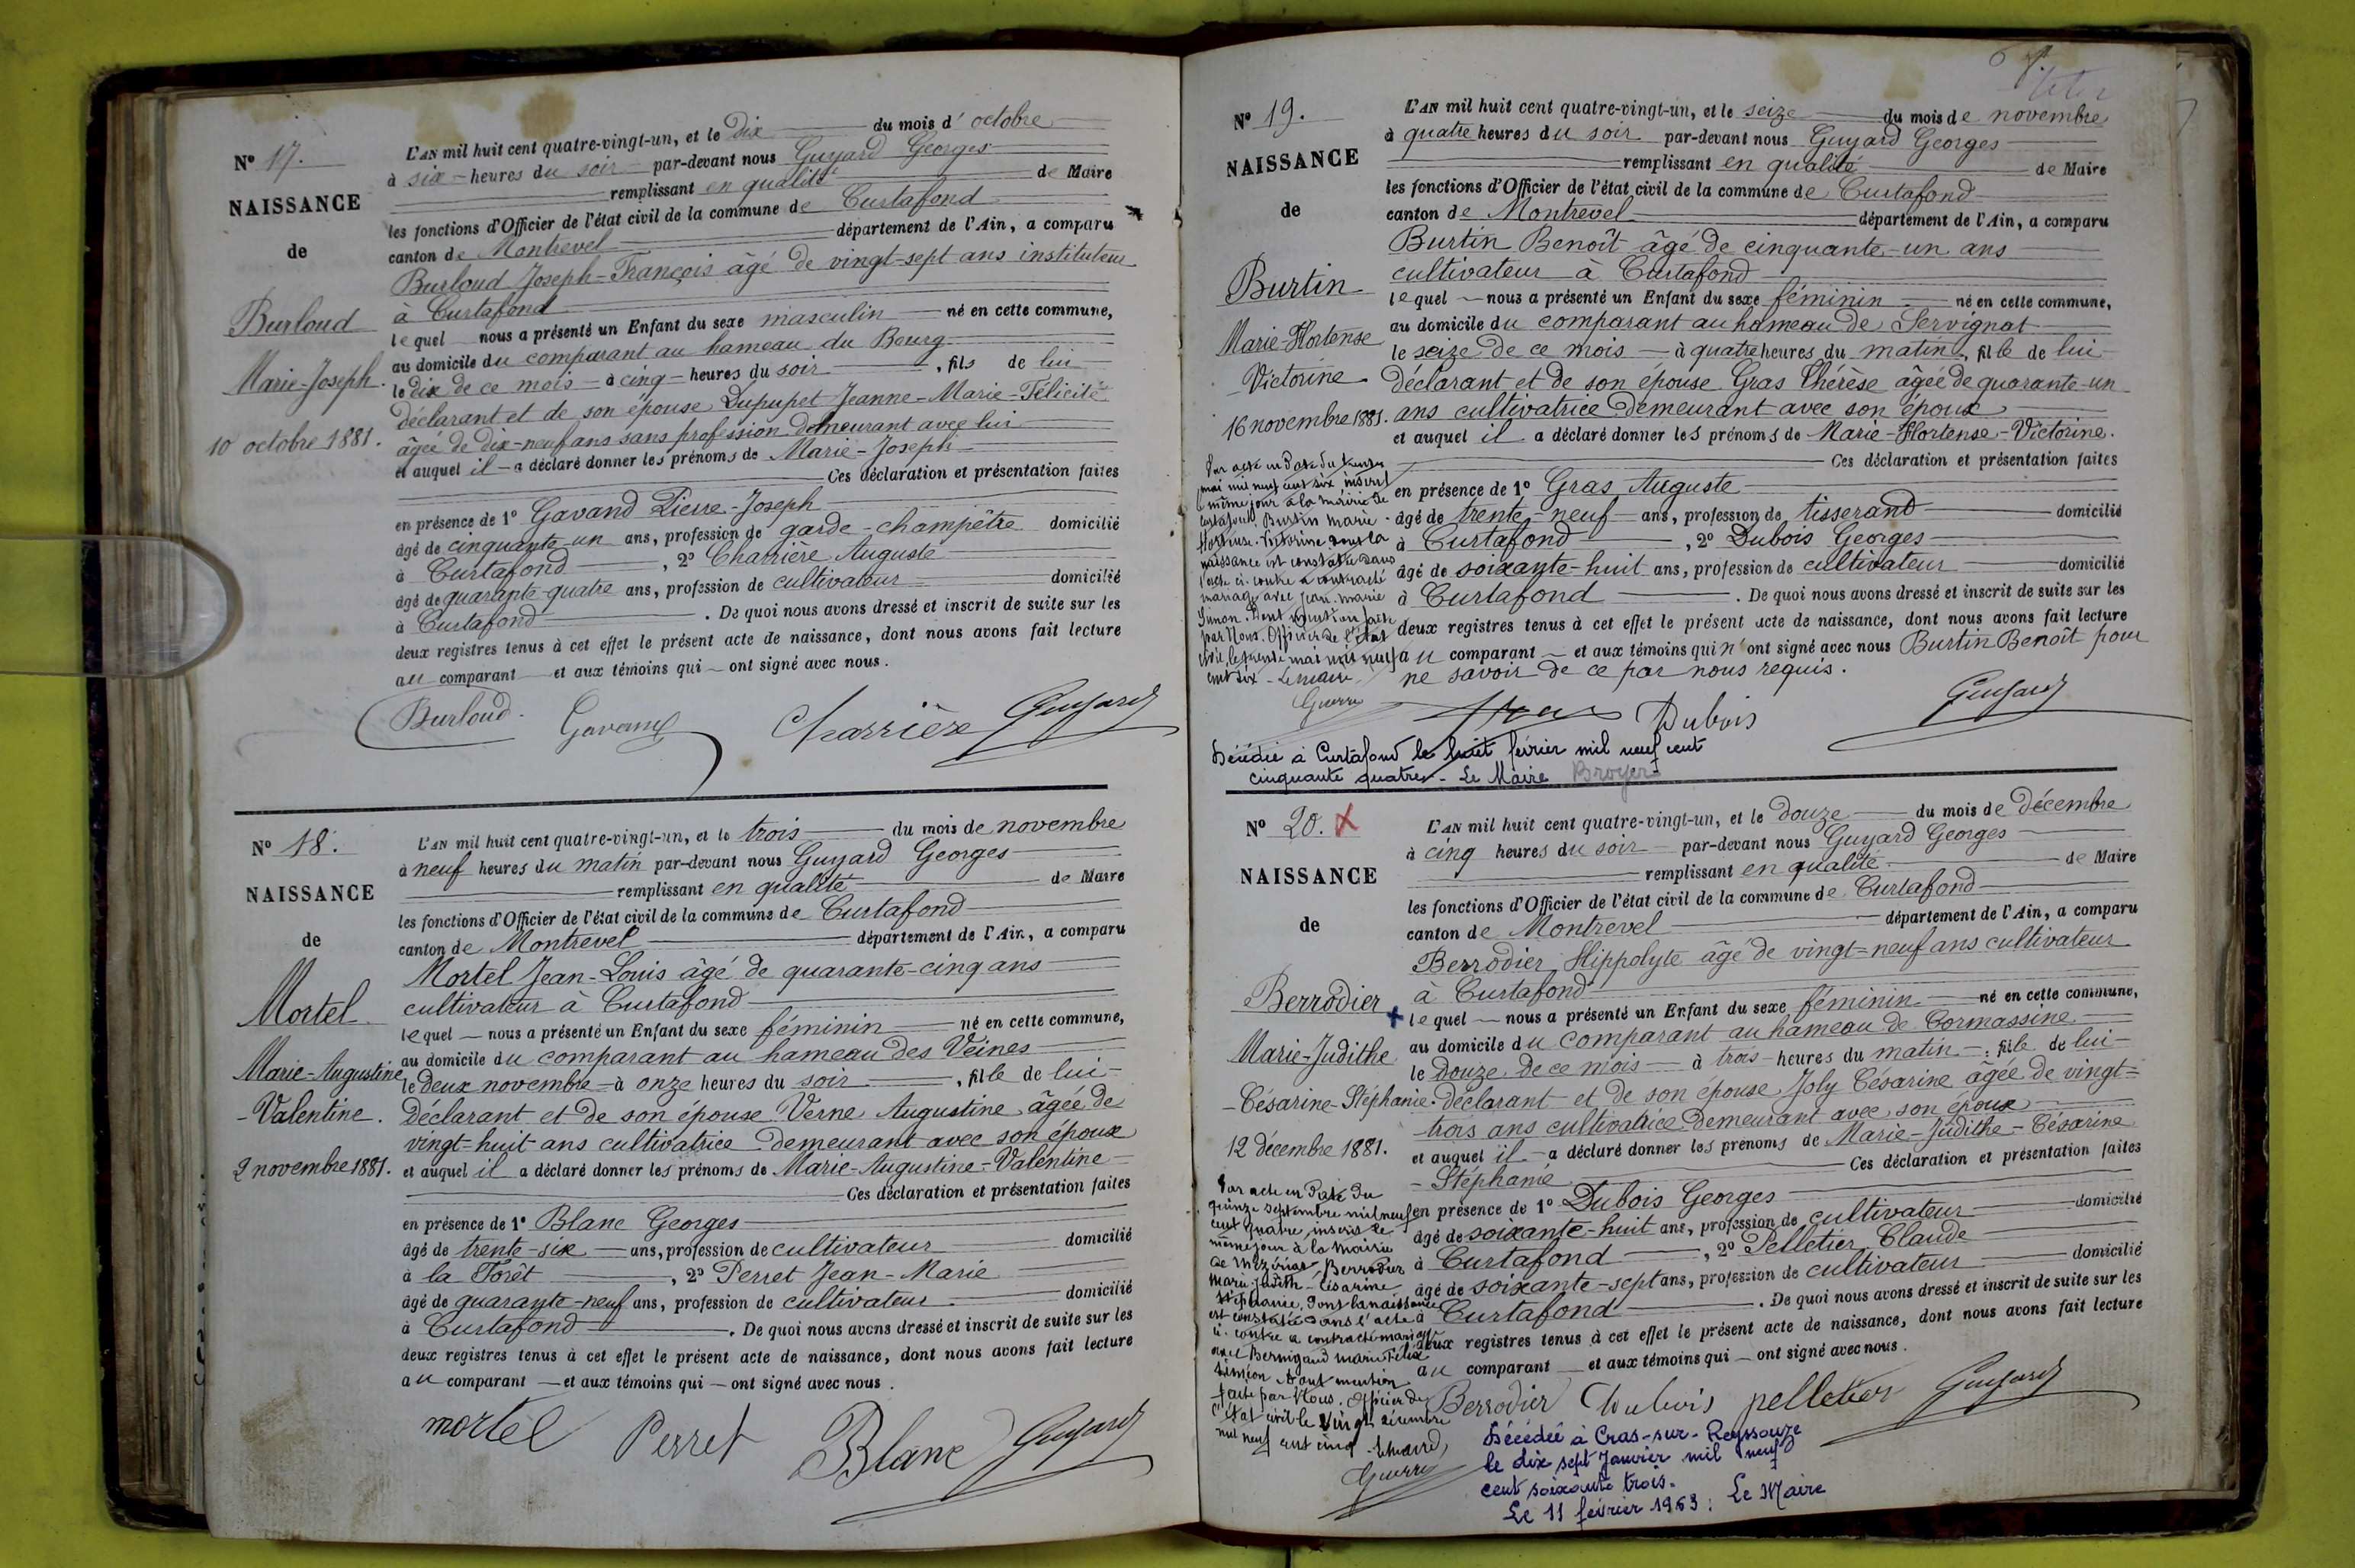 N° 17.
NAISSANCE
de
Burloud
Marie-Joseph.
10 octobre 1881.
L'AN mil huit cent quatre-vingt-un, et le dix du mois d' octobre
à six heures du soir par-devant nous Guyard Georges
remplissant en qualité de Maire
les fonctions d'Officier de l'état civil de la commune de Curtafond
canton de Montrevel département de l'Ain, a comparu
Burloud Joseph-François âgé de vingt-sept ans instituteur
à Curtafond
lequel nous a présenté un Enfant du sexe masculin né en cette commune,
au domicile du comparant au hameau du Bourg
le dix de ce mois à cinq heures du soir, fils de lui
déclarant et de son épouse Dupupet Jeanne-Marie-Félicité
âgée de dix-neuf ans sans profession demeurant avec lui
et auquel il a déclaré donner les prénoms de Marie-Joseph
Ces déclaration et présentation faites
en présence de 1° Gavand Pierre-Joseph
âgé de cinquante-un ans, profession de garde-champêtre domicilié
à Curtafond, 2° Charrière Auguste
âgé de quarante-quatre ans, profession de cultivateur domicilié
à Curtafond. De quoi nous avons dressé et inscrit de suite sur les
deux registres tenus à cet effet le présent acte de naissance, dont nous avons fait lecture
au comparant et aux témoins qui ont signé avec nous.
Burloud. Gavand Charrière Guyard
N° 18.
NAISSANCE
de
Mortel
Marie-Augustine
-Valentine.
2 novembre 1881.
L'AN mil huit cent quatre-vingt-un, et le trois du mois de novembre
à neuf heures du matin par-devant nous Guyard Georges
remplissant en qualité de Maire
les fonctions d'Officier de l'état civil de la commune de Curtafond
canton de Montrevel département de l'Ain, a comparu
Mortel Jean-Louis âgé de quarante-cinq ans
cultivateur à Curtafond
lequel nous a présenté un Enfant du sexe féminin né en cette commune,
au domicile du comparant au hameau des Veines
le deux novembre à onze heures du soir, fille de lui
déclarant et de son épouse Verne Augustine âgée de
vingt-huit ans cultivatrice demeurant avec son époux
et auquel il a déclaré donner les prénoms de Marie-Augustine-Valentine
Ces déclaration et présentation faites
en présence de 1° Blanc Georges
âgé de trente-six ans, profession de cultivateur domicilié
à la Forêt, 2° Perret Jean-Marie
âgé de quarante-neuf ans, profession de cultivateur domicilié
à Curtafond. De quoi nous avons dressé et inscrit de suite sur les
deux registres tenus à cet effet le présent acte de naissance, dont nous avons fait lecture
au comparant et aux témoins qui ont signé avec nous.
mortel Perret Blanc Guyard
N° 19.
NAISSANCE
de
Burtin
Marie-Hortense
Victorine
16 novembre 1881.
L'AN mil huit cent quatre-vingt-un, et le seize du mois de novembre
à quatre heures du soir par-devant nous Guyard Georges
remplissant en qualité de Maire
les fonctions d'Officier de l'état civil de la commune de Curtafond
canton de Montrevel département de l'Ain, a comparu
Burtin Benoît âgé de cinquante-un ans
cultivateur à Curtafond
lequel nous a présenté un Enfant du sexe féminin né en cette commune,
au domicile du comparant au hameau de Servignat
le seize de ce mois à quatre heures du matin, fille de lui
déclarant et de son épouse Gras Thérèse âgée de quarante-un
ans cultivatrice demeurant avec son époux
et auquel il a déclaré donner les prénoms de Marie-Hortense-Victorine.
Ces déclaration et présentation faites
en présence de 1° Gras Auguste
âgé de trente-neuf ans, profession de tisserand domicilié
à Curtafond, 2° Dubois Georges
âgé de soixante-huit ans, profession de cultivateur domicilié
à Curtafond. De quoi nous avons dressé et inscrit de suite sur les
deux registres tenus à cet effet le présent acte de naissance, dont nous avons fait lecture
au comparant et aux témoins qui n'ont signé avec nous Burtin Benoît pour
ne savoir de ce par nous requis.
Par acte en date du trente
mai mil neuf cent six inscrit
le même jour à la mairie de
Curtafond, Burtin Marie-
Hortense-Victorine dont la
naissance est constatée dans
l'acte ci-contre a contracté
mariage avec Jean-Marie
Dont mention faite
par Nous, Officier de l'état
civil, le trente mai mil neuf
cent six - Le maire
Guerry
Gras Dubois Guyard
Décédée à Curtafond le huit février mil neuf cent
cinquante quatre - Le Maire Broyer
N° 20. X
NAISSANCE
de
Berrodier
Marie-Judithe
-Césarine-Stéphanie.
12 décembre 1881.
L'AN mil huit cent quatre-vingt-un, et le douze du mois de décembre
à cinq heures du soir par-devant nous Guyard Georges
remplissant en qualité de Maire
les fonctions d'Officier de l'état civil de la commune de Curtafond
canton de Montrevel département de l'Ain, a comparu
Berrodier Hippolyte âgé de vingt-neuf ans cultivateur
à Curtafond
lequel nous a présenté un Enfant du sexe féminin né en cette commune,
au domicile du comparant au hameau de Cormassine
le douze de ce mois à trois heures du matin, fille de lui
déclarant et de son épouse Joly Césarine âgée de vingt-
trois ans cultivatrice demeurant avec son époux
et auquel il a déclaré donner les prénoms de Marie-Judithe-Césarine
-Stéphanie Ces déclaration et présentation faites
en présence de 1° Dubois Georges
âgé de soixante-huit ans, profession de cultivateur domicilié
à Curtafond, 2° Pelletier Claude
âgé de soixante-sept ans, profession de cultivateur domicilié
à Curtafond. De quoi nous avons dressé et inscrit de suite sur les
deux registres tenus à cet effet le présent acte de naissance, dont nous avons fait lecture
au comparant et aux témoins qui ont signé avec nous.
Par acte en date du
quinze septembre mil neuf
cent quatre, inscrit le
même jour à la mairie
de Mézériat, Berrodier
Marie Judith-Césarine
Stéphanie, dont la naissance
est constatée dans l'acte
ci-contre a contracté mariage
avec Bernigaud Marie Félix
Siméon dont mention
faite par Nous, Officier de
l'état civil le vingt décembre
mil neuf cent cinq - Le maire,
Guerry
Berrodier Dubois pelletier Guyard
Décédée à Cras-sur-Reyssouze
le dix sept Janvier mil neuf
cent soixante trois.
Le 11 février 1963: Le Maire